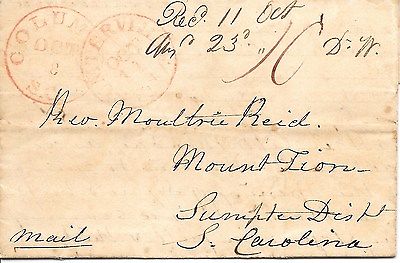 COLUM
OCT
8
Rec. 11 Oct
Ansd 23d „
10
D. W.
Rev. Moultrie Reid.
Mount Zion-
Sumpter Dist
S. Carolina
Mail